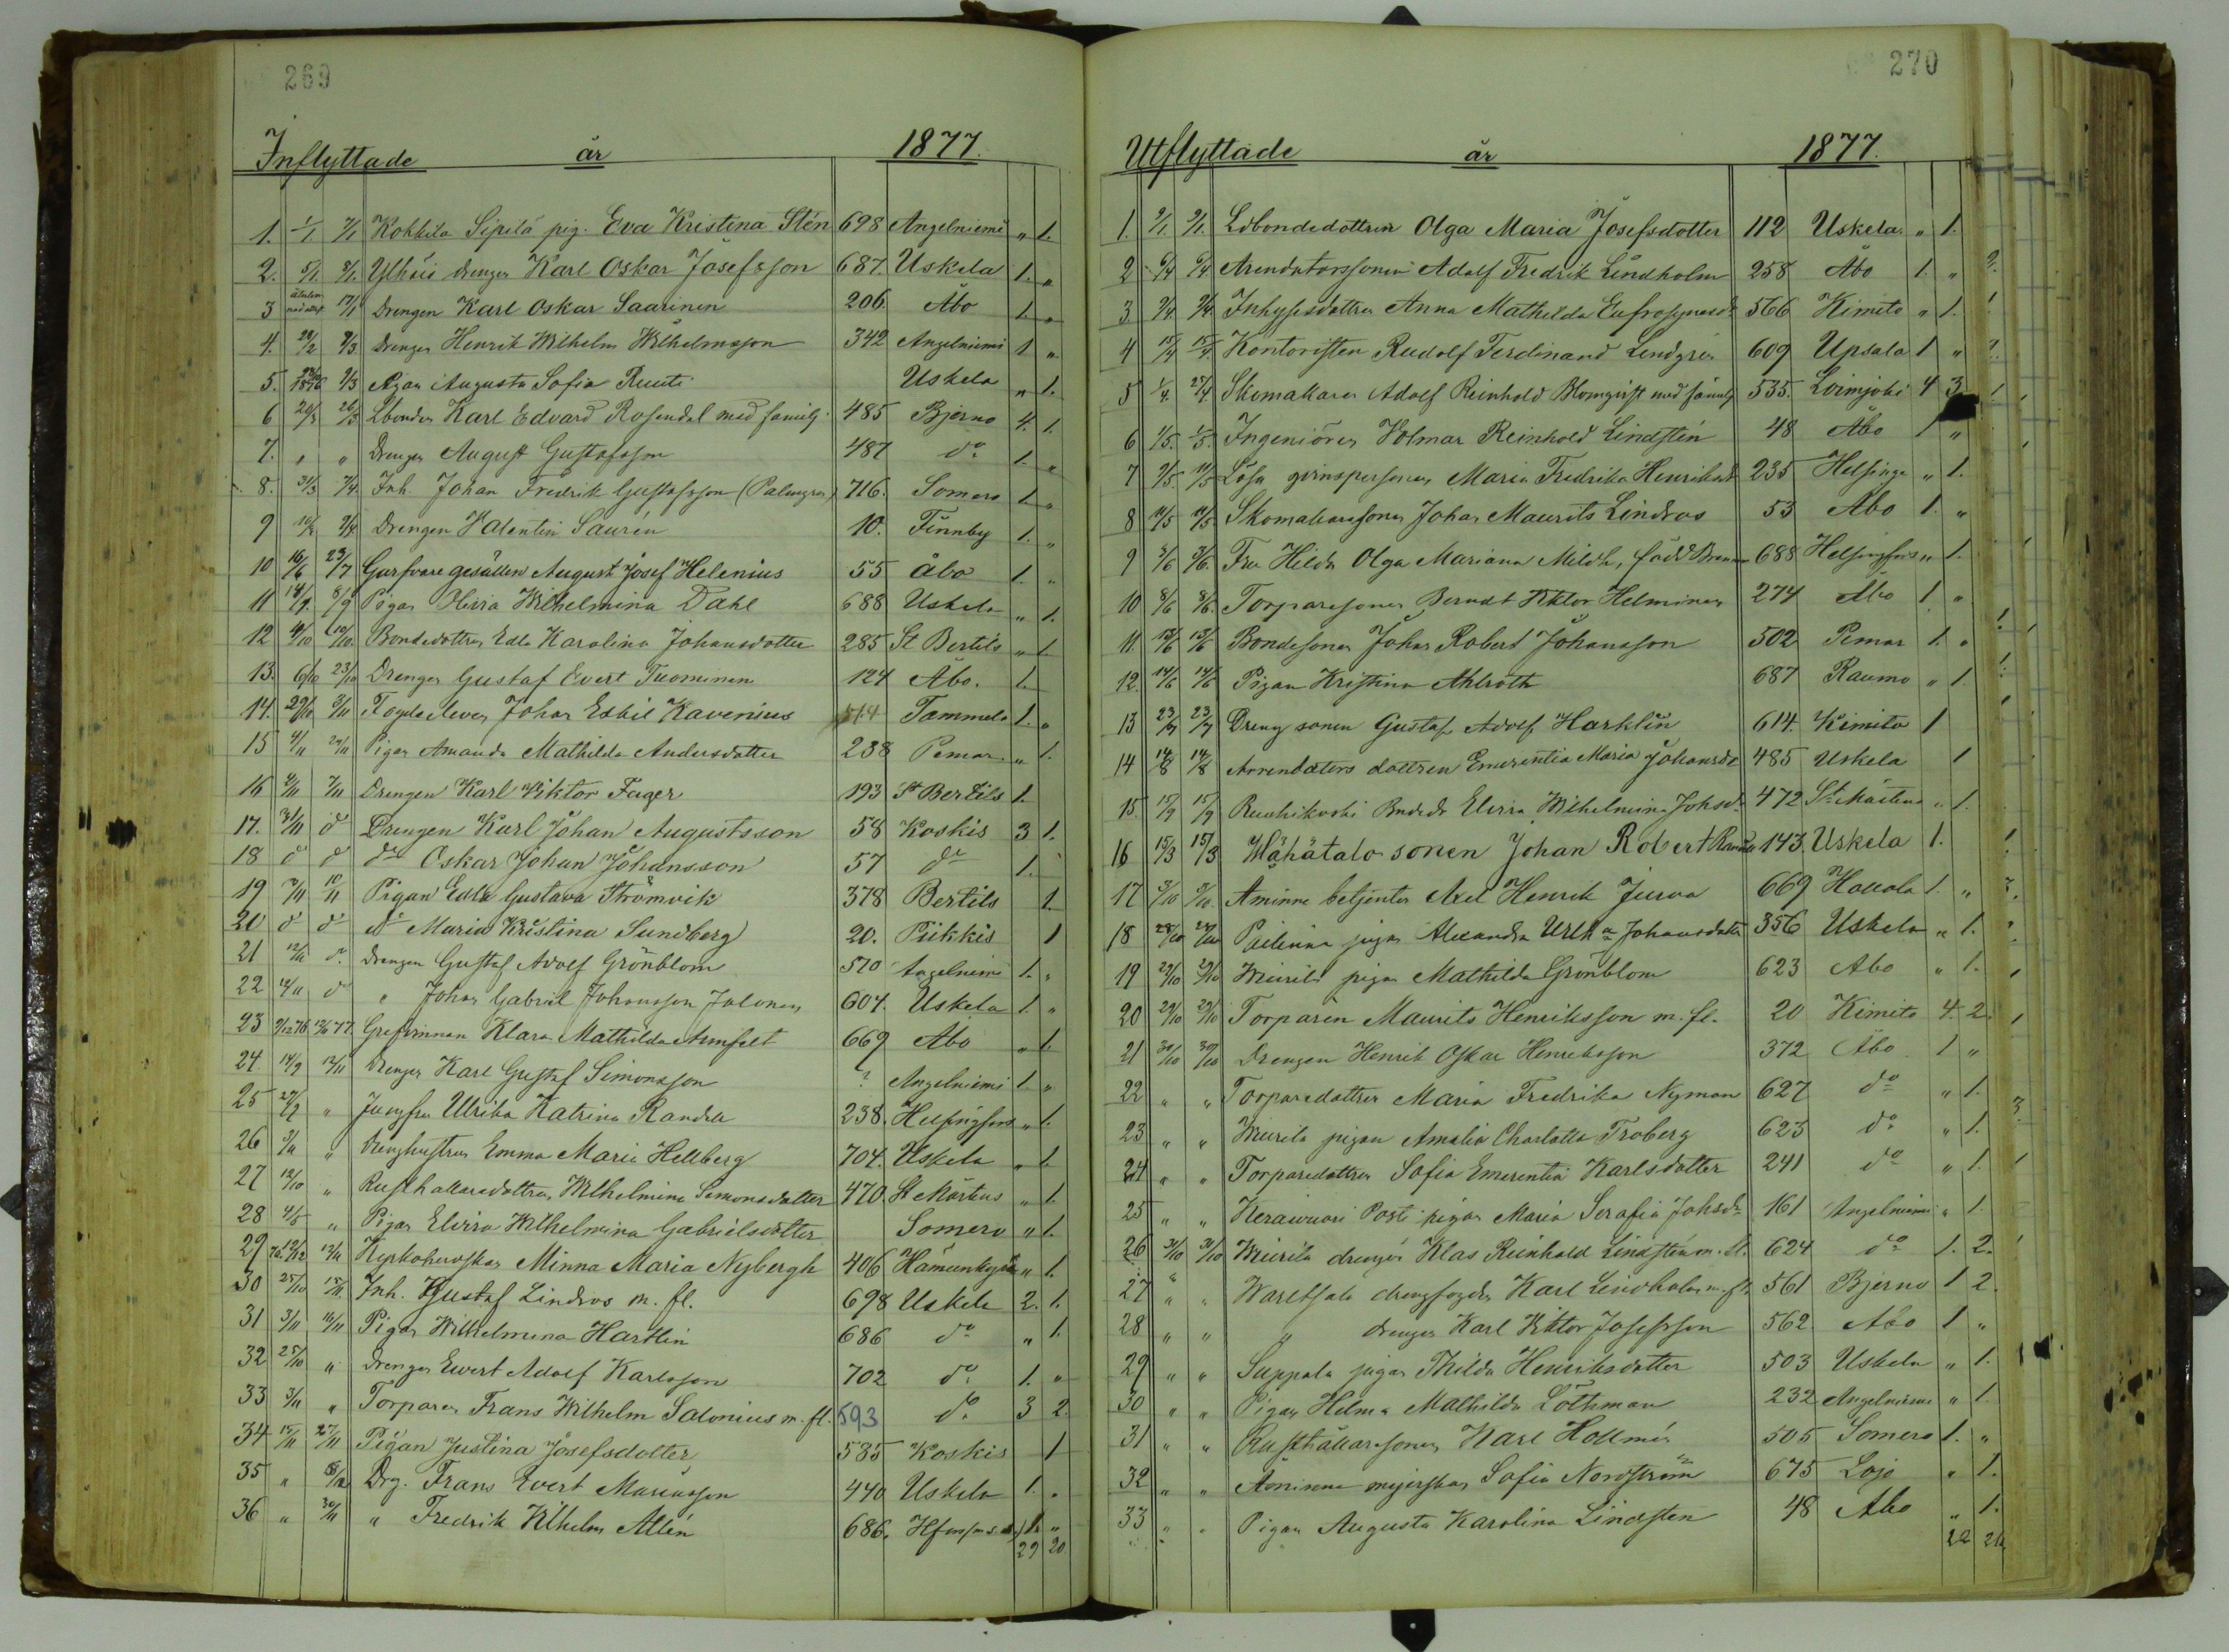 269
Inflyttade år 1877.
1. 1/1 7/1 Kokkila Sipilä pig. Eva Kristina Stén 698 Angelniemi " 1.
2. 5/1 8/1 Ylhäis drengen Karl Oskar Josefsson 687. Uskela 1. "
3 17/1 Drengen Karl Oskar Saarinen 206. Åbo 1. "
4. 28/2 9/3 Drengen Henrik Wilhelm Wilhelmsson 342 Angelniemi 1 "
5. 1876 9/3 Pigan Augusta Sofia Ruuti Uskela " 1.
6 20/3 26/3 Lbonden Karl Edvard Rosendal med familj 485 Bjerno 4. 1.
7. " " Drengen August Gustafsson 487 do 1. "
8. 31/3 7/4 Inh. Johan Fredrik Gustafsson (Palmgren) 716. Somero 1. "
9 Drengen Valentin Saurén 10. Finnby 1. "
10 16/6 23/7 Garfvare gesällen August Josef Helenius 55 åbo 1. "
11 8/9 Pigan Olivia Wilhelmina Dahl 688 Uskela " 1.
12 4/10 10/10. Bondedottren Edla Karolina Johansdotter 285 St Bertils " 1
13. 6/10 23/10 Drengen Gustaf Evert Tuominen 124 Åbo. 1.
14. 29/10 3/11 Fogdeeleven Johan Eskil Kavenius 514 Tammela 1. "
15 4/11 Pigan Amanda Mathilda Andersdotter 238 Pemar " 1.
16 2/11 7/11 Drengen Karl Viktor Fager 193 St Bertils 1.
17. 3/11 do Drengen Karl Johan Augustsson 58 Koskis 3 1.
18 do do do Oskar Johan Johansson 57 do 1.
19 7/11 10/11 Pigan Edla Gustava Strömvik 378 Bertils 1.
20 do do do Maria Kristina Sundberg 20. Piikkis 1
21 12/11 do. Drengen Gustaf Adolf Grönblom 570 Angelniemi 1. "
22 12/11 do " Johan Gabriel Johansson Jalonen 604. Uskela 1. "
23 9/12 76 12/11 77. Grefvinnan Klara Mathilda Armfelt 669 Åbo " 1.
24 14/9 12/11 Drengen Karl Gustaf Simonsson ? Angelniemi 1. "
25 27/9 " Jungfru Ulrika Katrina Randell 238. Helsingfors " 1.
26 3/11 " Drenghustrun Emma Maria Hellberg 704. Uskela " 1.
27 12/10 " Rusthållaredottren Wilhelmina Simonsdotter 470. St Mårtens " 1.
28 4/5 " Pigan Elvira Wilhelmina Gabrielsdotter Somero " 1.
29 12/11 Kipkokerskan Minna Maria Nybergh 406 Hämeenkyrö " 1.
30 25/10 15/11 Inh. Gustaf Lindros m. fl. 698 Uskela 2. 1.
31 3/11 16/11 Pigan Wilhelmina Hartlin 686 do " 1.
32 25/10 " Drengen Evert Adolf Karlsson 702 do. 1. "
33 3/11 " Torparen Frans Wilhelm Salonius m. fl. 593 do. 3 2.
34 15/11 27/11 Pigan Justina Josefsdotter 535 Koskis 1
35 " Drg. Frans Evert Mariasson 440 Uskela 1. "
36 " 30/11 " Fredrik Vilhelm Allén 686. Hfors 1. "
29 20
270
Utflyttade år 1877.
1. 9/1. 9/1. Ldbondedottren Olga Maria Josefsdotter 112 Uskela " 1.
2 Arendatorssonen Adolf Fredrik Lindholm 258 Åbo 1. "
3 9/4 9/4 Inhysesdottren Anna Mathilda Eufrosynasdr 566 Kimito " 1.
4 Kontoristen Rudolf Ferdinand Lindgren 609 Upsala 1 "
5 1/4. 27/4 Skomakaren Adolf Reinhold Blomqvist med familj 535. Loimjoki 4 3
6 1/5. 1/5. Ingeniören Volmar Reinhold Lindstén 48 Åbo 1 "
7 Lösa qvinspersonen Maria Fredrika Henriksdr 235 Helsinge " 1.
8 Skomakaresonen Johan Maurits Lindros 53 Åbo 1. "
9 Fru Hilda Olga Mariana Mildh, född 688 Helsingfors " 1.
10 8/6 8/6. Torparesonen Berndt Viktor Helminen 274 Åbo 1. "
11. 13/6 13/6 Bondesonen Johan Robert Johansson 502 Pemar 1. "
12. 14/6 14/6 Pigan Kristina Ahlroth 687 Raumo " 1.
13 23/7 23/7 Dreng sonen Gustaf Adolf Harklin 614. Kimito 1
14 14/8 14/8 Arrendators dottren Emerentia Maria Johansdr 485 Uskela 1
15. 15/9 15/9 Ruuhikoski Bndedr Elvira Wilhelmina Johsdr 472 St Mårtens " 1.
16 15/3 15/3 Wähätalo sonen Johan Robert 143. Uskela 1.
17 Åminne betjenten Axel Henrik Jusva 669 Hollola 1. "
18 28/10 Pailinna pigan Alexandra Urlka Johansdotter 356 Uskela " 1.
19 29/10 29/10 Muurila pigan Mathilda Grönblom 623 Åbo " 1.
20 29/10 29/10 Torparen Maurits Henriksson m. fl. 20 Kimito 4. 2.
21 30/10 30/10 Drengen Henrik Oskar Henriksson 372 Åbo 1 "
22 " " Torparedottren Maria Fredrika Nyman 627 do " 1.
23 " " Muurila pigan Amalia Charlotta Troberg 623 do " 1.
24 " " Torparedottren Sofia Emerentia Karlsdotter 241 do " 1.
25 " " Keraivuori Posti pigan Maria Serafia Johsdr 161 Angelniemi " 1.
26 31/10 31/10 Muurila drengen Klas Reinhold Lindstén m. fl. 624 do 1. 2.
27 " " Wartsala drengfogden Karl Lindholm m. fl. 561 Bjerno 1 2.
28 " " " drengen Karl Viktor Josefsson 562 Åbo 1 "
29 " " Suppala pigan Thilda Henriksdotter 503 Uskela " 1.
30 " " Pigan Helma Mathilda Löthman 232 Angelniemi " 1.
31 " " Rusthållaresonen Karl Hollmén 505 Somero 1. "
32 " " Åminne mejerskan Sofia Nordström 675 Lojo " 1.
33 " " Pigan Augusta Karolina Lindsten 48 Åbo " 1.
22 21